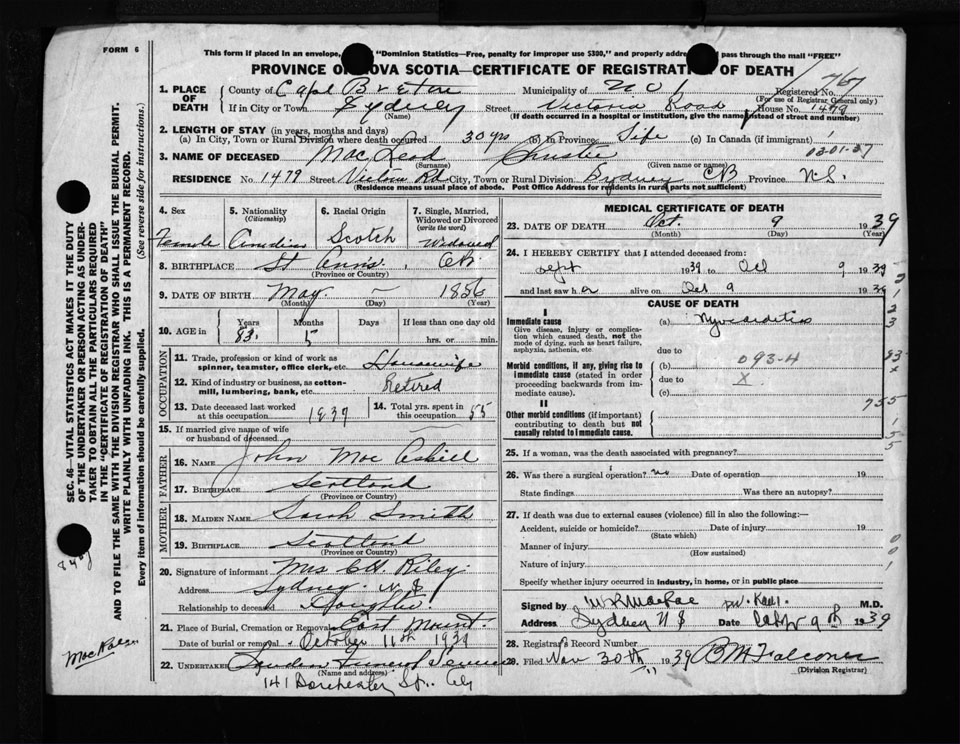 FORM 6
This form if placed in an envelope, "Dominion Statistics—Free, penalty for improper use $300," and properly addre pass through the mail "FREE"
PROVINCE OF NOVA SCOTIA—CERTIFICATE OF REGISTRATION OF DEATH
1. PLACE OF DEATH County of Cape Breton Municipality of Registered No. 767
(For use of Registrar General only)
If in City or Town Sydney Street Victoria Road House No. 1479
(Name) (If death occurred in a hospital or institution, give the name instead of street and number)
2. LENGTH OF STAY (in years, months and days)
(a) In City, Town or Rural Division where death occurred 30 yrs (b) in Province Life (c) In Canada (if immigrant)
3. NAME OF DECEASED MacLeod Christie
(Surname) (Given name or names)
RESIDENCE No. 1479 Street Victoria Rd City, Town or Rural Division Sydney CB Province N.S.
(Residence means usual place of abode. Post Office Address for residents in rural parts not sufficient)
4. Sex 5. Nationality (Citizenship) 6. Racial Origin 7. Single, Married, Widowed or Divorced (write the word)
Female Canadian Scotch Widowed
8. BIRTHPLACE St Anns C.B.
(Province or Country)
9. DATE OF BIRTH May — 1856
(Month) (Day) (Year)
10. AGE in Years Months Days If less than one day old
83 5 hrs. or min.
OCCUPATION
11. Trade, profession or kind of work as spinner, teamster, office clerk, etc. Housewife
12. Kind of industry or business, as cotton-mill, lumbering, bank, etc. Retired
13. Date deceased last worked at this occupation 1937 14. Total yrs. spent in this occupation 55
15. If married give name of wife or husband of deceased
FATHER
16. NAME John MacAskill
17. BIRTHPLACE Scotland
(Province or Country)
MOTHER
18. MAIDEN NAME Sarah Smith
19. BIRTHPLACE Scotland
(Province or Country)
20. Signature of informant Mrs C.H. Riley
Address Sydney N S
Relationship to deceased Daughter
21. Place of Burial, Cremation or Removal East Mount
Date of burial or removal October 11th 1939
22. UNDERTAKER Funeral Service
(Name and address)
141 Dorchester St., City
MEDICAL CERTIFICATE OF DEATH
23. DATE OF DEATH Oct 9 1939
(Month) (Day) (Year)
24. I HEREBY CERTIFY that I attended deceased from:
Sept 1939 to Oct 9 1939
and last saw her alive on Oct 9 1939
CAUSE OF DEATH
I
Immediate cause (a) Myocarditis
Give disease, injury or complication which caused death, not the mode of dying, such as heart failure, asphyxia, asthenia, etc.
due to
Morbid conditions, if any, giving rise to immediate cause (stated in order proceeding backwards from immediate cause). (b) 093-4
due to X
(c)
II
Other morbid conditions (if important) contributing to death but not causally related to immediate cause.
25. If a woman, was the death associated with pregnancy?
26. Was there a surgical operation? no Date of operation 19
State findings Was there an autopsy?
27. If death was due to external causes (violence) fill in also the following:—
Accident, suicide or homicide? Date of injury 19
(State which)
Manner of injury
(How sustained)
Nature of injury
Specify whether injury occurred in industry, in home, or in public place
Signed by W R MacRae M.D.
Address Sydney N S Date 9th 1939
28. Registrar's Record Number
29. Filed Nov 30th 1939 B M Falconer
(Division Registrar)
SEC. 46—VITAL STATISTICS ACT MAKES IT THE DUTY
OF THE UNDERTAKER OR PERSON ACTING AS UNDER-
TAKER TO OBTAIN ALL THE PARTICULARS REQUIRED
IN THE "CERTIFICATE OF REGISTRATION OF DEATH"
AND TO FILE THE SAME WITH THE DIVISION REGISTRAR WHO SHALL ISSUE THE BURIAL PERMIT.
WRITE PLAINLY WITH UNFADING INK. THIS IS A PERMANENT RECORD.
Every item of information should be carefully supplied. (See reverse side for instructions.)